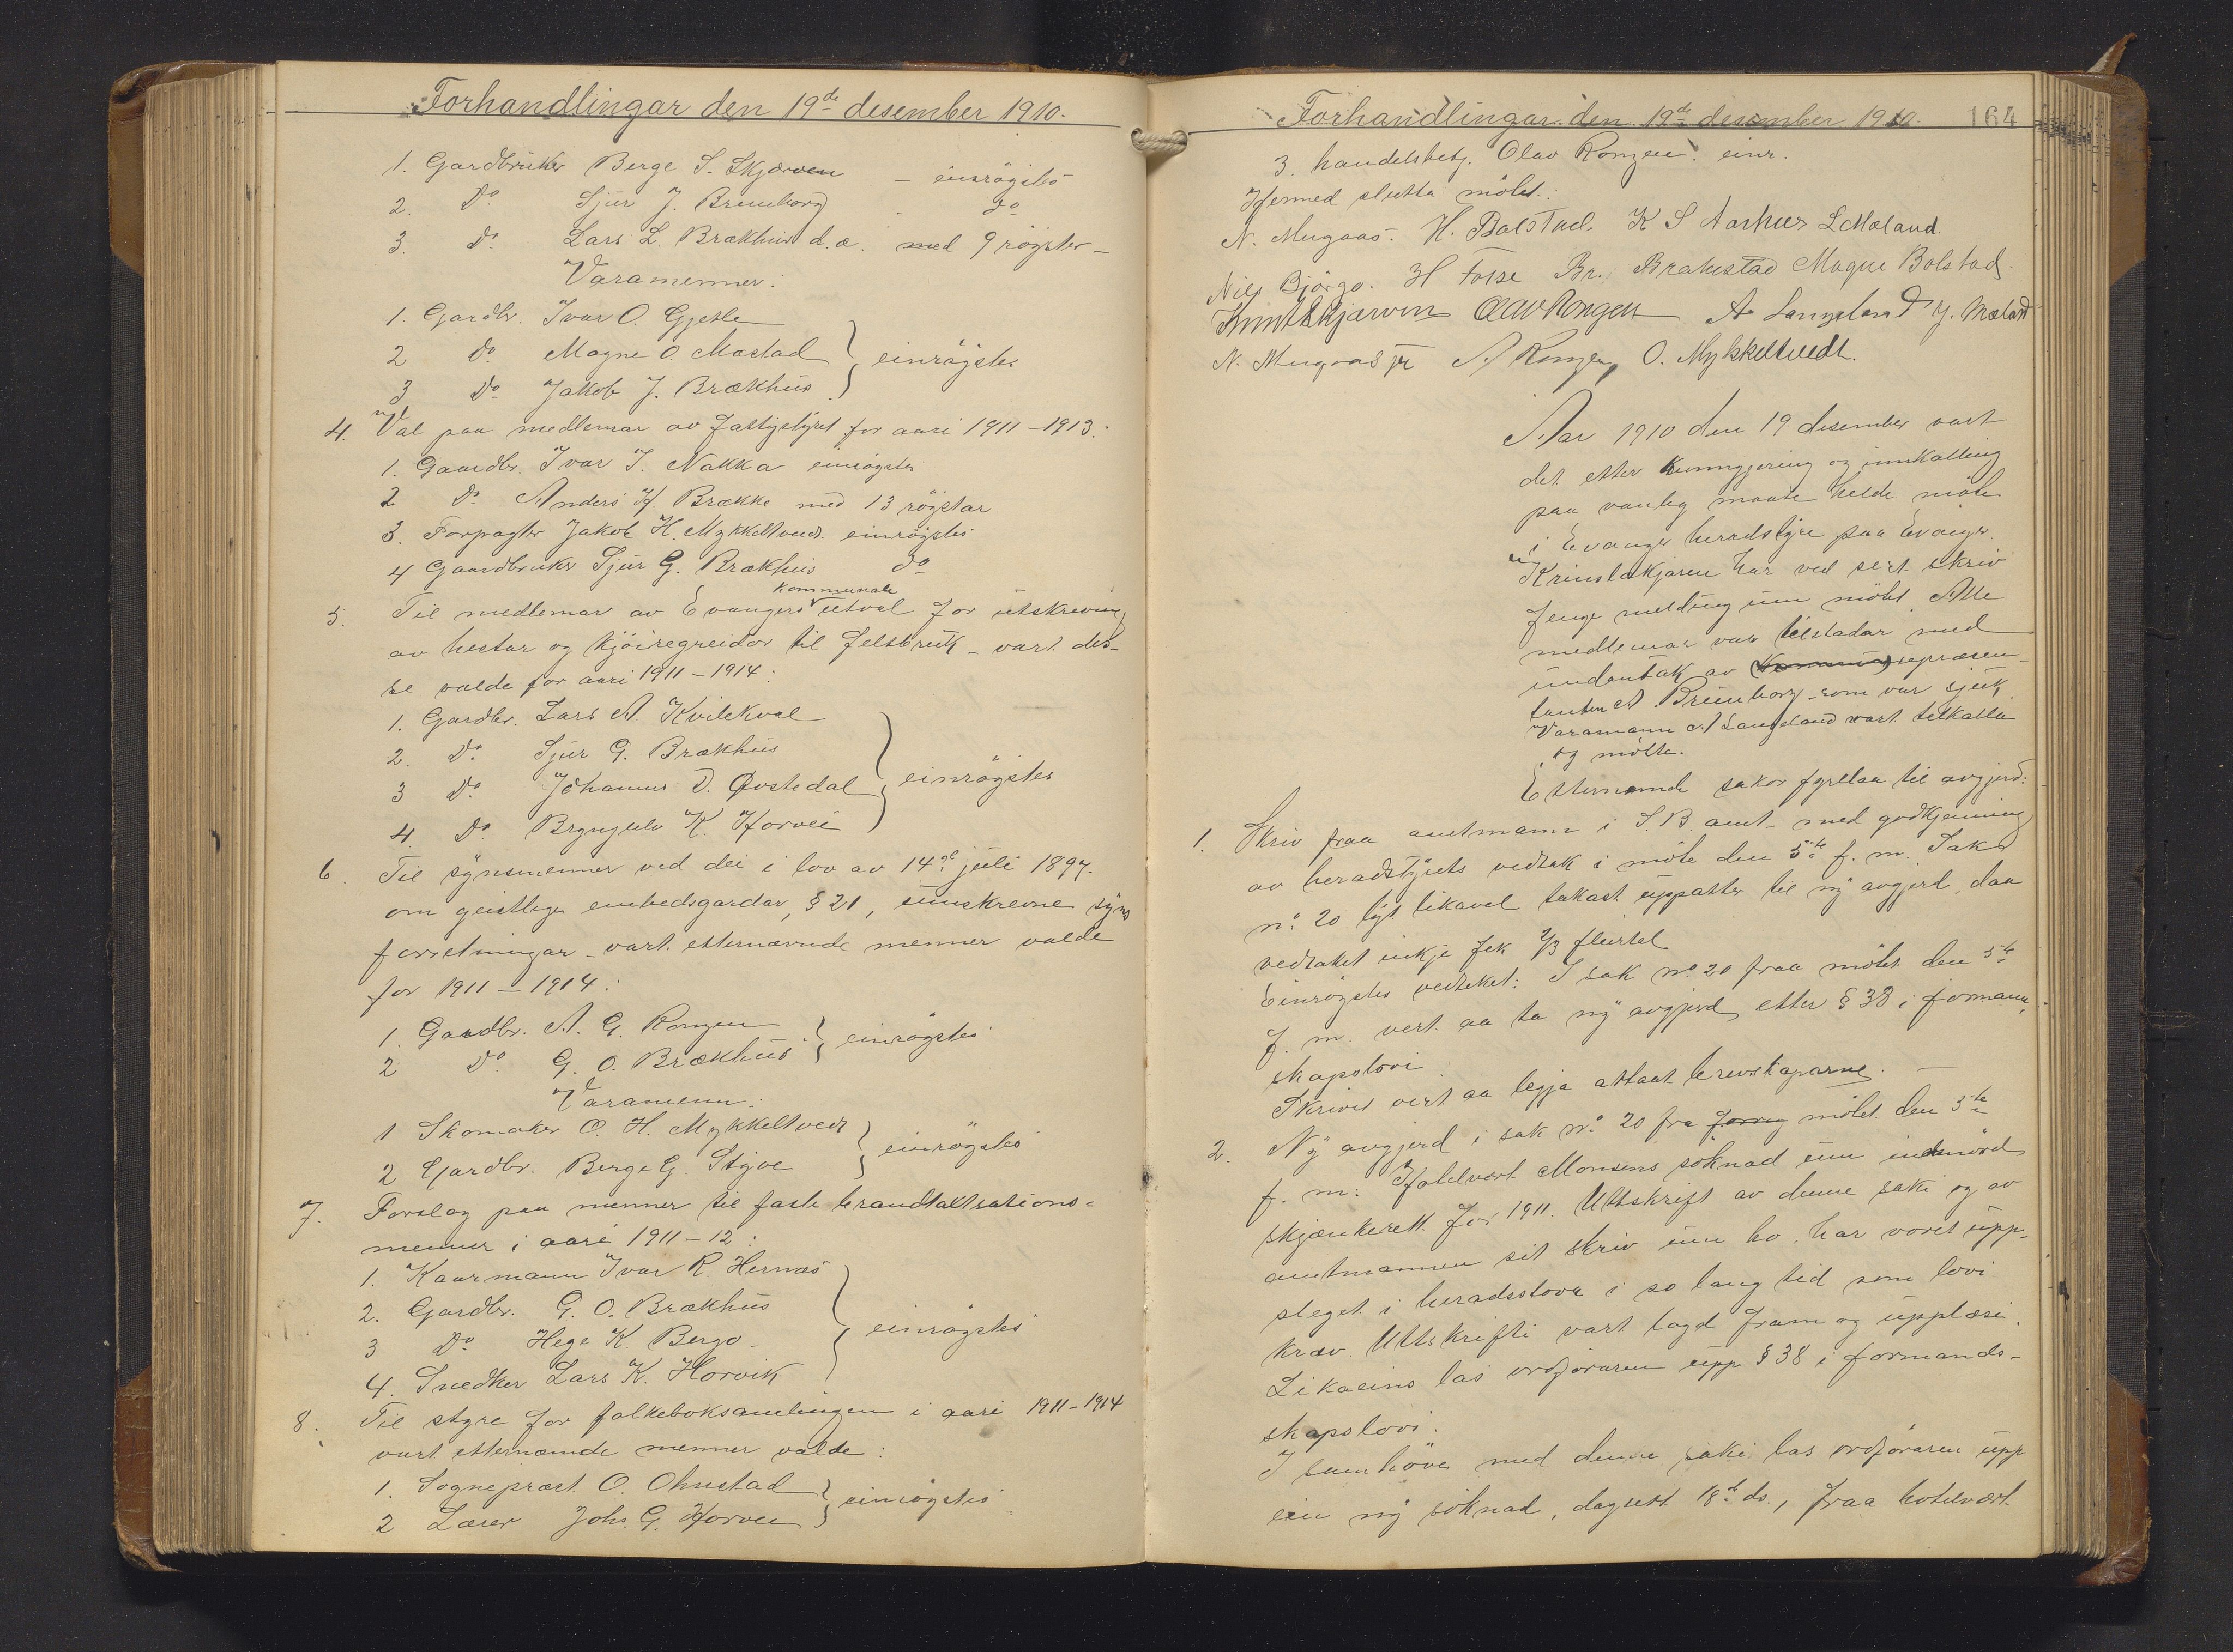 Forhandlingar den 19de desember 1910.
1. Gardbruker Berge S. Skjerven – einrøgstes
2. Do Sjur J. Brunborg do
3. Do Lars L. Brækhus d.æ. med 9 røgster –
Varamenner:
1. Gardbr. Ivar O. Gjetle
2 Do Magne O Mæstad } einrøgstes
3 Do Jakob J. Brækhus
4. Val paa medlemar av fatigstyret for aari 1911–1913:
1. Gaardbr. Ivar I. Nakka einrøgstes
2 Do Anders H. Brække med 13 røgstar
3. Forpagter Jakob H. Mykkeltvedt einrøgstes
4 Gaardbruker Sjur G. Brækhus do
kommunale
5. Til medlemar av Evangers utval for utskreving
av hestar og kjøiregreidor til felsbruk – vart des-
se valde for aari 1911–1914:
1. Gardbr. Lars A. Kvilekval
2. Do Sjur G. Brækhus
3 Do Johannes D. Øvstedal } einrøgstes
4. Do Brynjulv K. Horvei
6. Til synsmenner ved dei i lov av 14de juli 1897
om geistlige embedsgardar, § 21, umskrevne syns
forretningar – vart etternævnde menner valde
for 1911–1914:
1. Gardbr. A. G. Rongen } einrøgstes
2 Do G. O. Brækhus
Varamenn:
1 Skomaker O. H. Mykkeltvedt } einrøgstes
2 Gardbr. Berge G. Styve
7. Forslag paa menner til faste brandtakstrations-
menner i aari 1911–12:
1. Kaarmann Ivar R. Hernæs
2. Gardbr. G. O. Brækhus
3 Do Hege K. Bergo } einrøgstes
4. Snedker Lars K. Horvik
8. Til styre for folkeboksamlingen i aari 1911–1914
vart etternæmde menner valde:
1. Sogneprest O. Ohnstad } einrøgstes
2 Lærer Johs. G. Horvei
Forhandlingar den 19de desember 1910. 164
3. handelsbetj. Olav Rongen. einr.
Hermed slutta møtet.:
N. Mugaas. H. Bolstad K S Aarhus L Mæland.
Nils Bjørgo. H Fosse Br. Brakestad Magne Bolstad.
Knut Skjærven Olav Rongen A Langeland J. Mæland
N. Mugaas jr A Rongen, O. Mykkeltvedt.
Aar 1910 den 19 desember vart
det etter kunngjering og innkalling
paa vanleg maate helde møte
i Evanger heradstyre paa Evanger.
Krinslækjaren har ved sert. skriv
fenge melding um møtet. Alle
medlemar var tilstadar med
undantak av repræsen-
tanten A. Brunborg – som var sjuk.
Varamann A Langeland vart tilkalla
og møtte.
Etternemde sakor fyrelaa til avgjerd:
1. Skriv fraa amtmann i S. B. amt – med godkjenning
av heradstyrets vedtak i møte den 5te f. m. Sak
no 20 lyt likavel takast uppatter til ny avgjerd, daa
vedtaket inkje fek 2/3 fleirtal
Einrøgstes vedteket: I sak no 20 fraa møtet den 5te
f. m. vert aa ta ny avgjerd, etter § 38 i formann-
skapslovi.
Skrivet vert aa legja attaat brevskaparne. –
2. Ny avgjerd i sak no 20 fra møtet den 5te
f. m: Hotelvert Monsens søknad um
skjænkerett for 1911. Uttskrift av denne saki og av
amtmannen sit skriv um ho, har voret upp-
sleget i heradsstova i so lang tid som lovi
kræv. Uttskrifti vart lagd fram og upplæsi.
Likaeins las ordføraren upp § 38 i formands-
skapslovi.
I samhøve med denne saki las ordføraren upp
ein ny søknad, dagsett 18de ds., fraa hotelvært